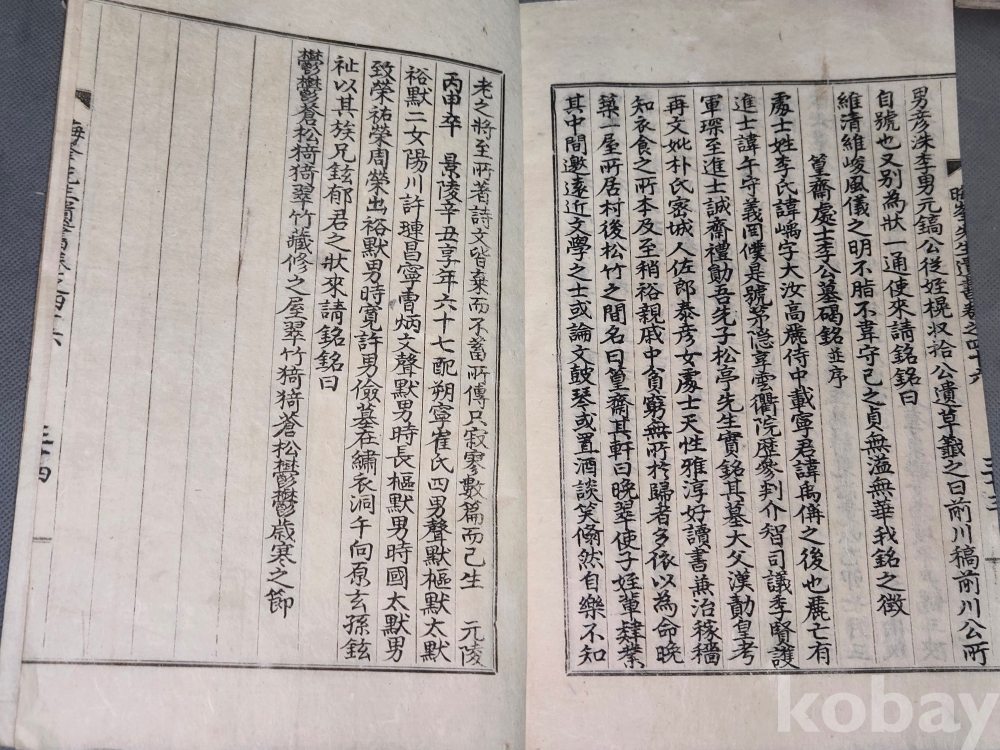 男彦洙李男元鎬公從姪榥収拾公遺草籤之曰前川稿前川公所
自號也又別為狀一通使來請銘銘曰
維清維峻風儀之明不脂不韋守己之貞無溢無華我銘之徵
篁齋處士李公墓碣銘並序
處士姓李氏諱嵎字大汝高麗侍中載寧君諱禹偁之後也麗亡有
進士諱午守義罔僕是號茅隱享雲衢院歷叅判介智司議季賢護
軍琛至進士誠齋禮勛吾先子松亭先生實銘其墓大父漢勣皇考
再文妣朴氏密城人佐郎泰彦女處士天性雅淳好讀書兼治稼穡
知衣食之所本及至稍裕親戚中貧窮無所扵歸者多依以為命晚
築一屋所居村後松竹之間名曰篁齋其軒曰晚翠使子姪輩肄業
其中間邀遠近文學之士或論文鼓琴或置酒談笑翛然自樂不知
三十三
老之將至所著詩文皆棄而不蓄所傳只寂寥數篇而已生 元陵
丙申卒 景陵辛丑享年六十七配朔寧崔氏四男聲默樞默太默
裕默二女陽川許璉昌寧曺炳文聲默男時長樞默男時國太默男
致榮祐榮周榮出裕默男時寬許男儉墓在繡衣洞午向原玄孫鉉
祉以其族兄鉉郁君之狀來請銘銘曰
鬱鬱蒼松猗猗翠竹藏修之屋翠竹猗猗蒼松鬱鬱歲寒之節
三十四
kobay